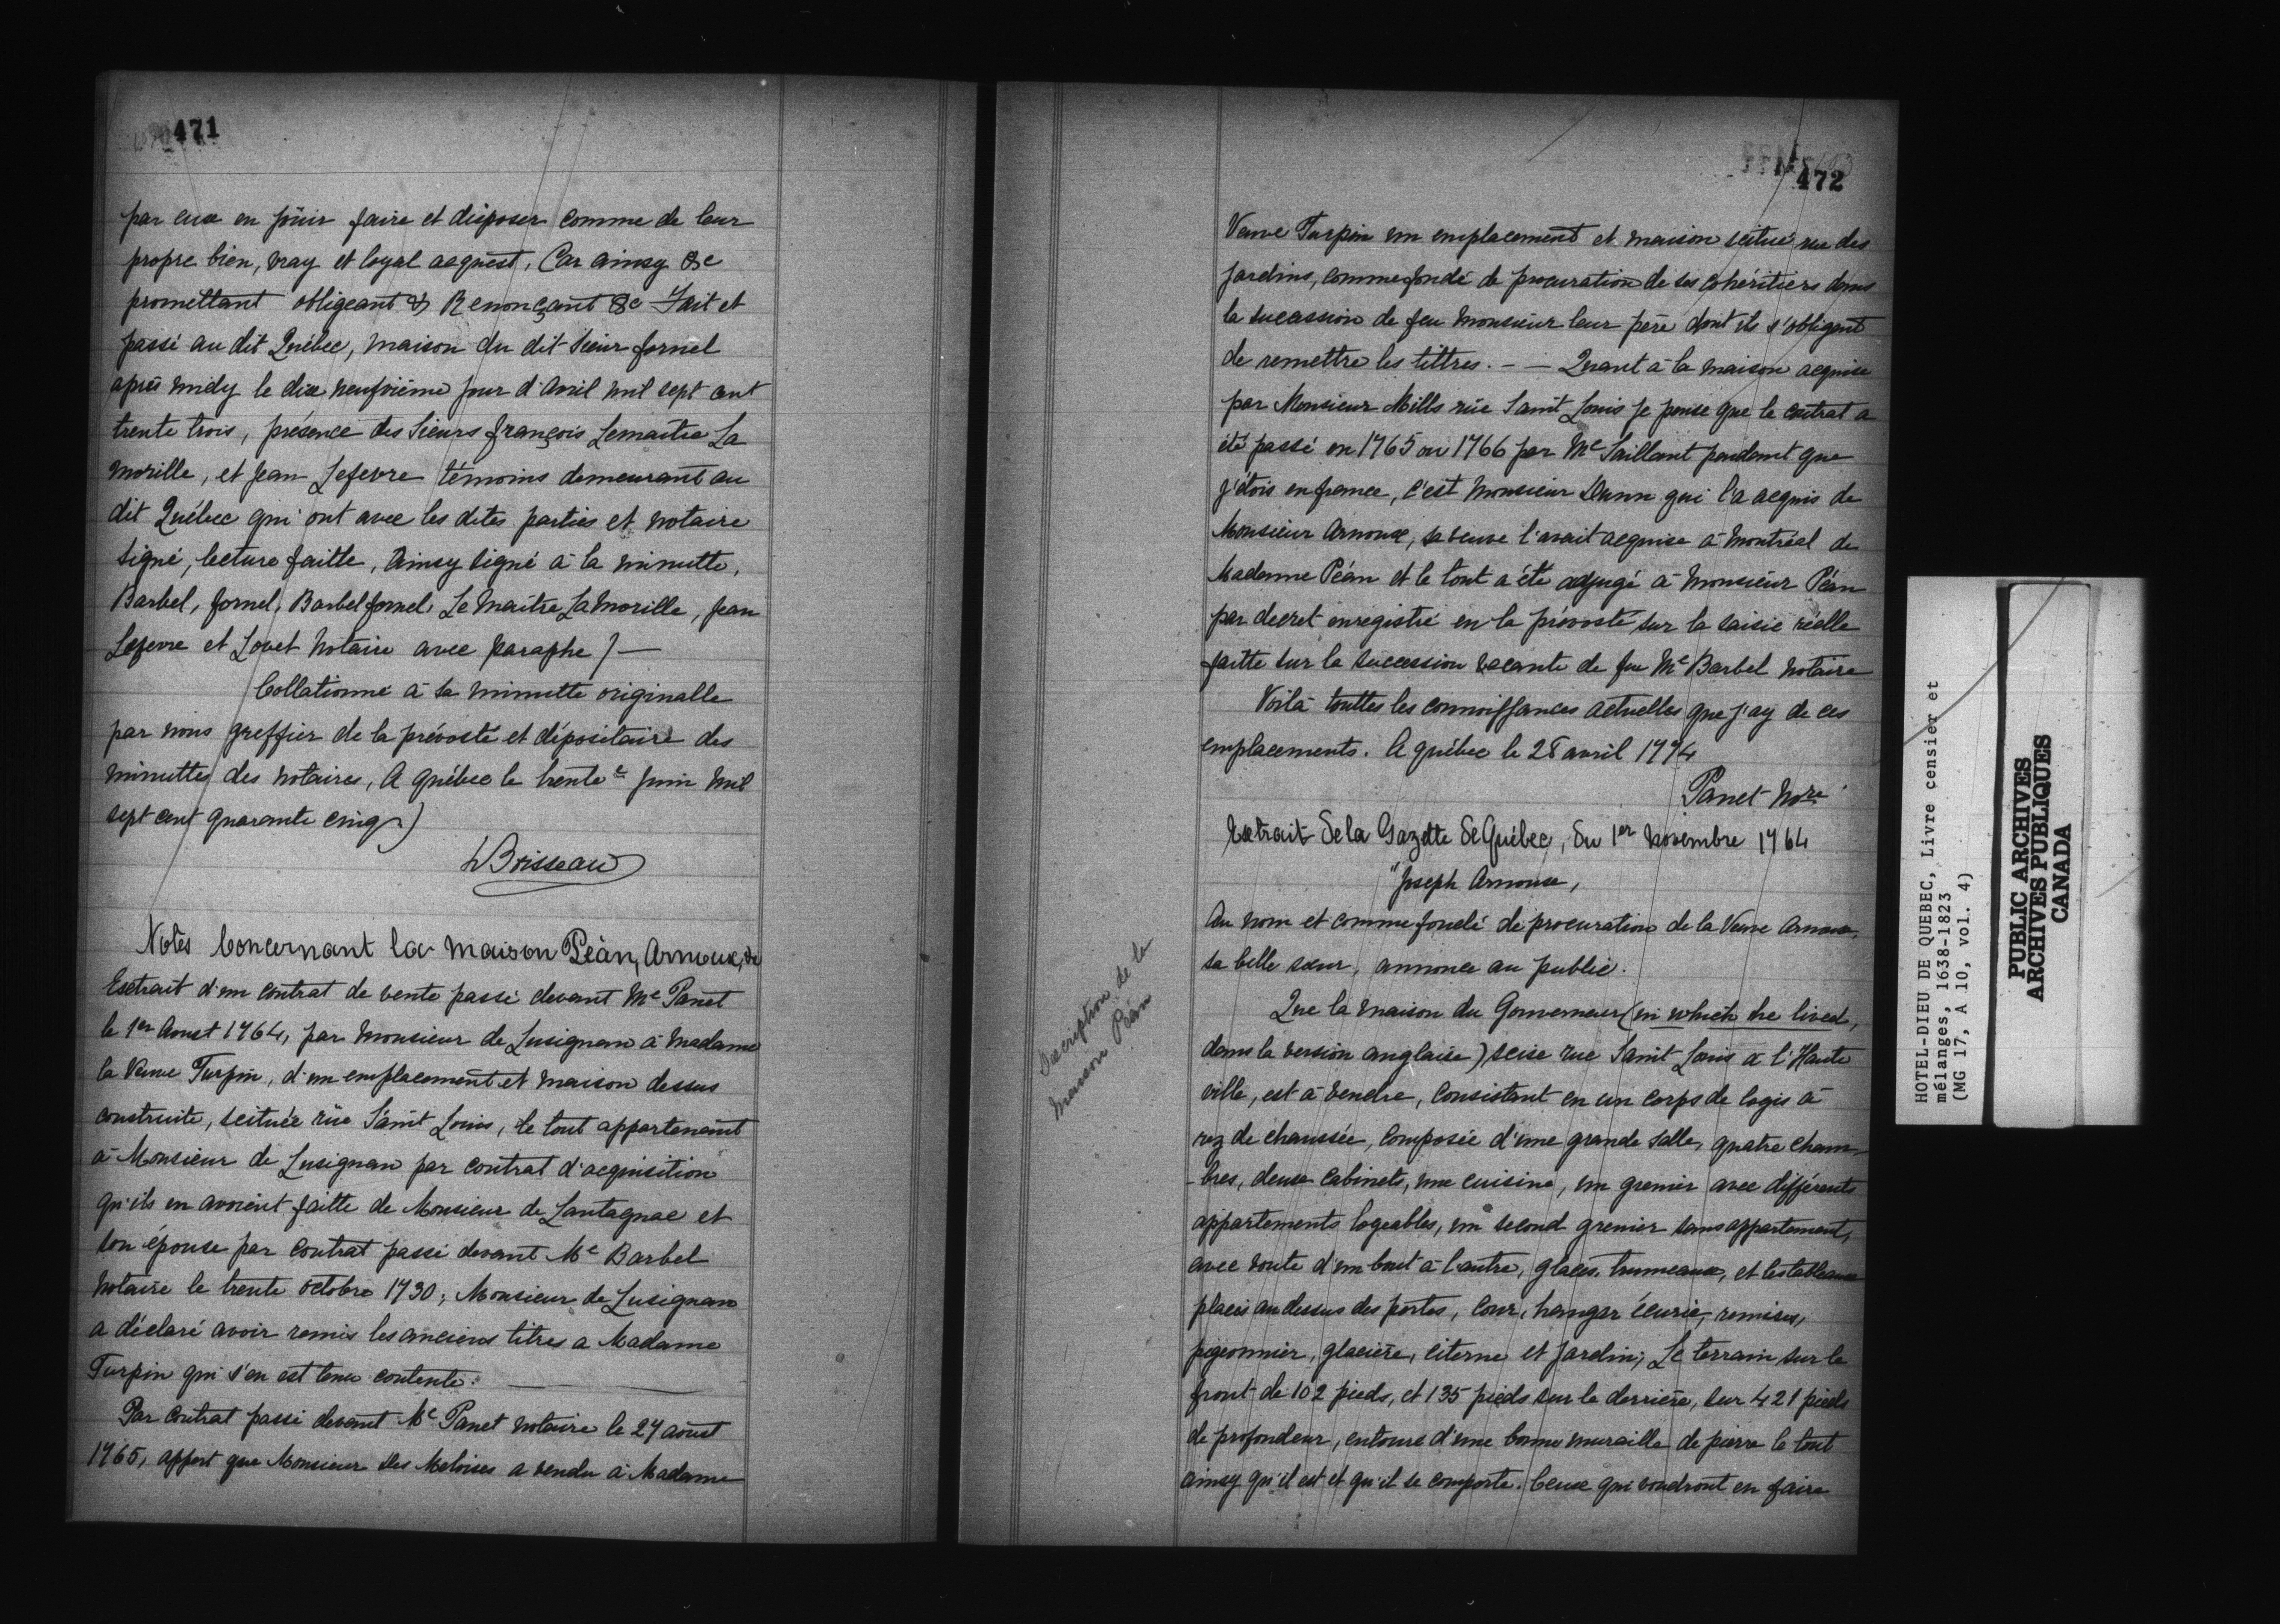 471
par eux en jouir faire et disposer comme de leur
propre bien, vray et loyal acquest, Car ainsy &c
promettant obligeant & Renonçant &c Fait et
passé au dit Québec, maison du dit Sieur fornel
après midy le dix neufvième jour d'avril mil sept cent
trente trois, présence des Sieurs françois Lemaitre La
Morille, et Jean Lefevre témoins demeurant au
dit Québec qui ont avec les dites parties et notaire
signé, lecture faitte, Ainsy signé à la minutte,
Barbel, fornel, Barbel fornel, Le Maitre LaMorille, Jean
Lefevre et Louet Notaire avec paraphe) —
Collationné à sa minutte originalle
par nous greffier de la prévosté et dépositaire des
minuttes des notaires, A québec le trente e Juin mil
sept cent quarante cinq.)
Boisseau
Notes Concernant la maison Péan, Arnoux, &c
Extrait d'un contrat de vente passé devant Me Panet
le 1er Aoust 1764, par Monsieur de Lusignan à Madame
la Veuve Turpin, d'un emplacement et maison dessus
construite, scituée rüe Saint Louis, le tout appartenant
à Monsieur de Lusignan par contrat d'acquisition
qu'ils en avoient faitte de Monsieur de Lantagnac et
son épouse par contrat passé devant Me Barbel
Notaire le trente octobre 1730; Monsieur de Lusignan
a déclaré avoir remis les anciens titres a Madame
Turpin qui s'en est tenu contente. —
Par contrat passé devant Me Panet notaire le 27 aoust
1765, appert que Monsieur Des Meloises a vendu à Madame
472
Veuve Turpin un emplacement et maison scitué rue des
Jardins, comme fondé de procuration de ses cohéritiers dans
la sucession de feu Monsieur leur père dont ils s'obligent
de remettre les tittres. — — Quant à la maison acquise
par Monsieur Mills rüe Saint Louis je pense que le contrat a
été passé en 1765 ou 1766 par Me Saillant pendant que
j'étois en france, c'est Monsieur Dunn qui l'a acquis de
Monsieur Arnoux, sa veuve l'avait acquise à Montréal de
Madame Péan et le tout a été adjugé à Monsieur Péan
par decret enregistré en la prévosté sur la saisie réelle
faitte sur la succession vacante de feu Me Barbel notaire
Voilà touttes les connoissances actuelles que j'ay de ces
emplacements. A québec le 28 avril 1774
Panet Nore
Extrait de la Gazette de Québec, du 1er Novembre 1764
"Joseph Arnoux,
Au nom et comme fondé de procuration de la Veuve Arnoux,
sa belle sœur, annonce au public.
Description de la
maison Péan
Que la maison du Gouverneur (in which he lived,
dans la version anglaise) scise rue Saint Louis à l'Haute
ville, est à vendre, consistant en un corps de logis à
rez de chaussée, composée d'une grande salle, quatre cham-
-bres, deux cabinets, une cuisine, un grenier avec différents
appartements logeables, un second grenier sans appartement,
avec voute d'un bout à l'autre, glaces, trumeaux, et les tableaux
placés au dessus des portes, cour, hangar écurie, remises,
pigeonnier, glacière, citerne et jardin; Le terrain sur le
front de 102 pieds, et 135 pieds sur le derrière, sur 421 pieds
de profondeur, entouré d'une bonne muraille de pierre le tout
ainsy qu'il est et qu'il se comporte. Ceux qui voudront en faire
HOTEL-DIEU DE QUEBEC, Livre censier et
mélanges, 1638-1823
(MG 17, A 10, vol. 4)
PUBLIC ARCHIVES
ARCHIVES PUBLIQUES
CANADA